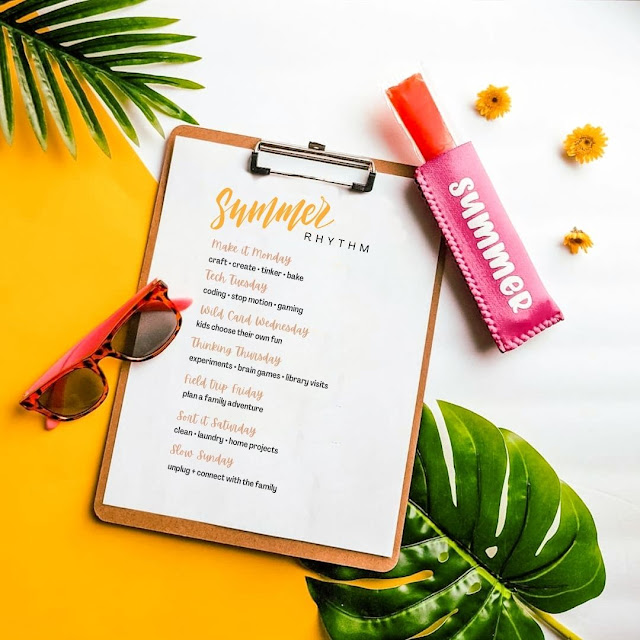 Summer
RHYTHM
Make it Monday
craft • create • tinker • bake
Tech Tuesday
coding • stop motion • gaming
Wild Card Wednesday
kids choose their own fun
Thinking Thursday
experiments • brain games • library visits
Field Trip Friday
plan a family adventure
Sort it Saturday
clean • laundry • home projects
Slow Sunday
unplug + connect with the family
summer